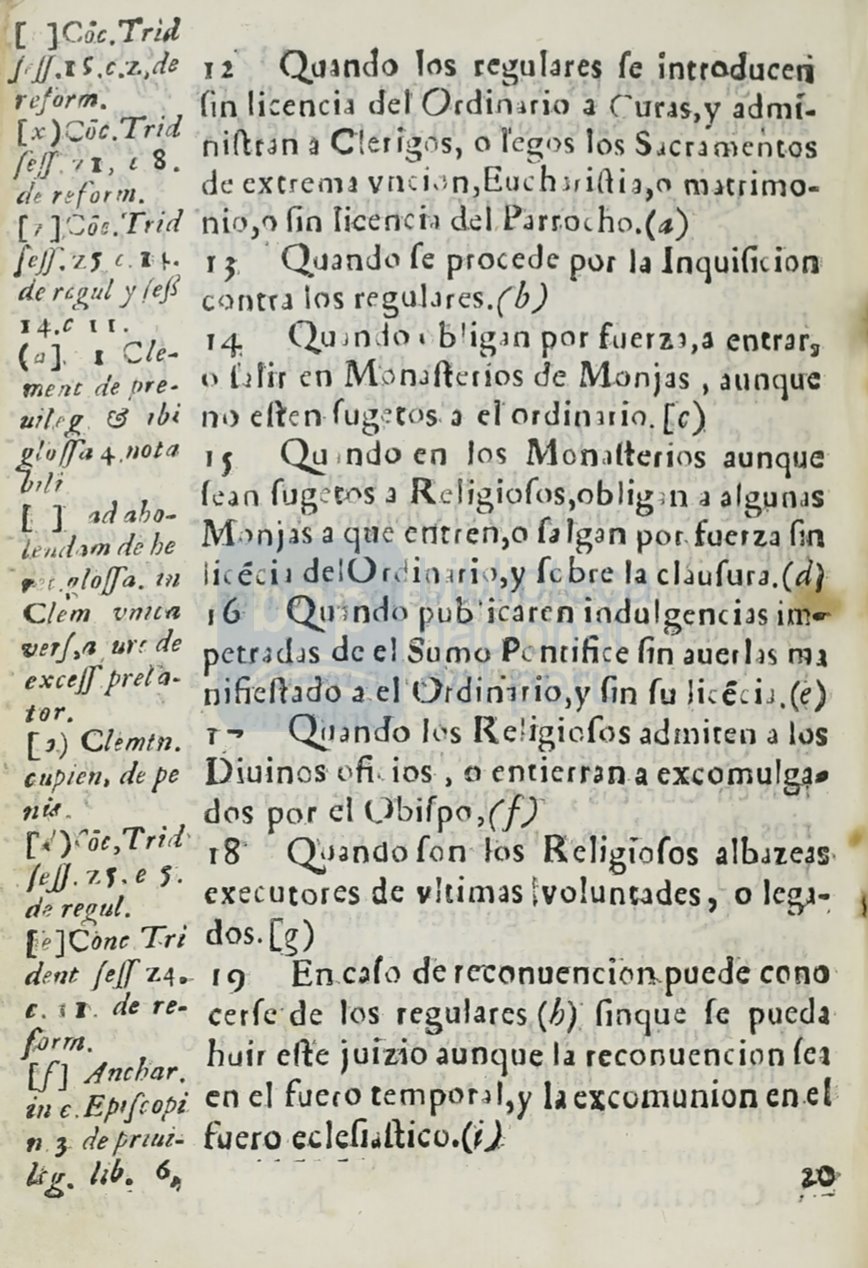 [ ]Cõc.Trid
sess.15.c.2.,de
reform.
[x)Cõc.Trid
sess. 21, c 8.
de reform.
[7]Cõc.Trid
sess.25 c.14.
de regul y sess
14.c 11.
(a]. 1 Cle-
ment de pre-
uileg & ibi
glossa 4.nota
bili
[ ] ad abo-
lendam de he
glossa. in
Clem vnica
vers,a ure de
excess prela-
tor.
[ ) Clemtn.
cupien, de pe
nis.
[d)Cõc,Trid
sess. 25. e 5.
de regul.
[e]Conc Tri
dent sess 24.
c. 11. de re-
form.
[f] Anchar.
in c.Episcopi
n 3 de priui-
leg. lib. 6,
12 Quando los regulares ſe introducen
ſin licencia del Ordinario a Curas,y admi-
niſtran a Clerigos, o legos los Sacramentos
de extrema vncion,Euchariſtia,o matrimo-
nio,o ſin licencia del Parrocho.(a)
13 Quando ſe procede por la Inquiſicion
contra los regulares.(b)
14 Quando obligan por fuerza,a entrar,
o ſalir en Monaſterios de Monjas , aunque
no eſten ſugetos a el ordinario.[c)
15 Quando en los Monaſterios aunque
ſean ſugetos a Religioſos,obligan a algunas
Monjas a que entren,o ſalgan por fuerza ſin
licécia delOrdinario,y ſobre la clauſura.(d)
16 Quando publicaren indulgencias im-
petradas de el Sumo Pontifice ſin auerlas ma
nifieſtado a el Ordinario,y ſin ſu licécia.(e)
17 Quando los Religioſos admiten a los
Diuinos oficios , o entierran a excomulga-
dos por el Obiſpo,(f)
18 Quando ſon los Religioſos albazeas
executores de vltimas voluntades, o lega-
dos.[g)
19 En caſo de reconuencion puede cono
cerſe de los regulares (h) ſinque ſe pueda
huir eſte juizio aunque la reconuencion ſea
en el fuero temporal,y la excomunion en el
fuero ecleſiaſtico.(i)
20